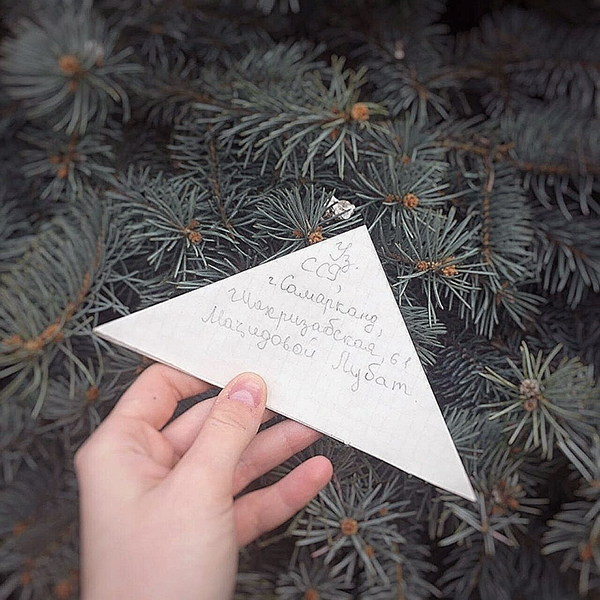 Уз.
ССР,
г. Самарканд,
г Шахризабская, 61
Мажидовой Мубат